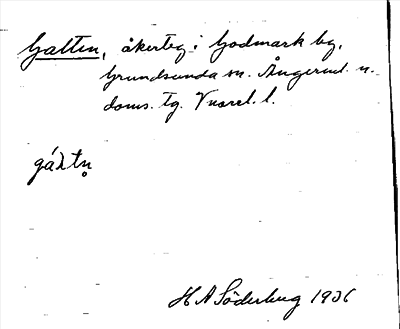 Galten, åkerteg i Godmark by,
Grundsunda sn. Ångerml. n.
doms. tg. Vnorrl. l.
gáλtn̥
H A Söderberg 1936